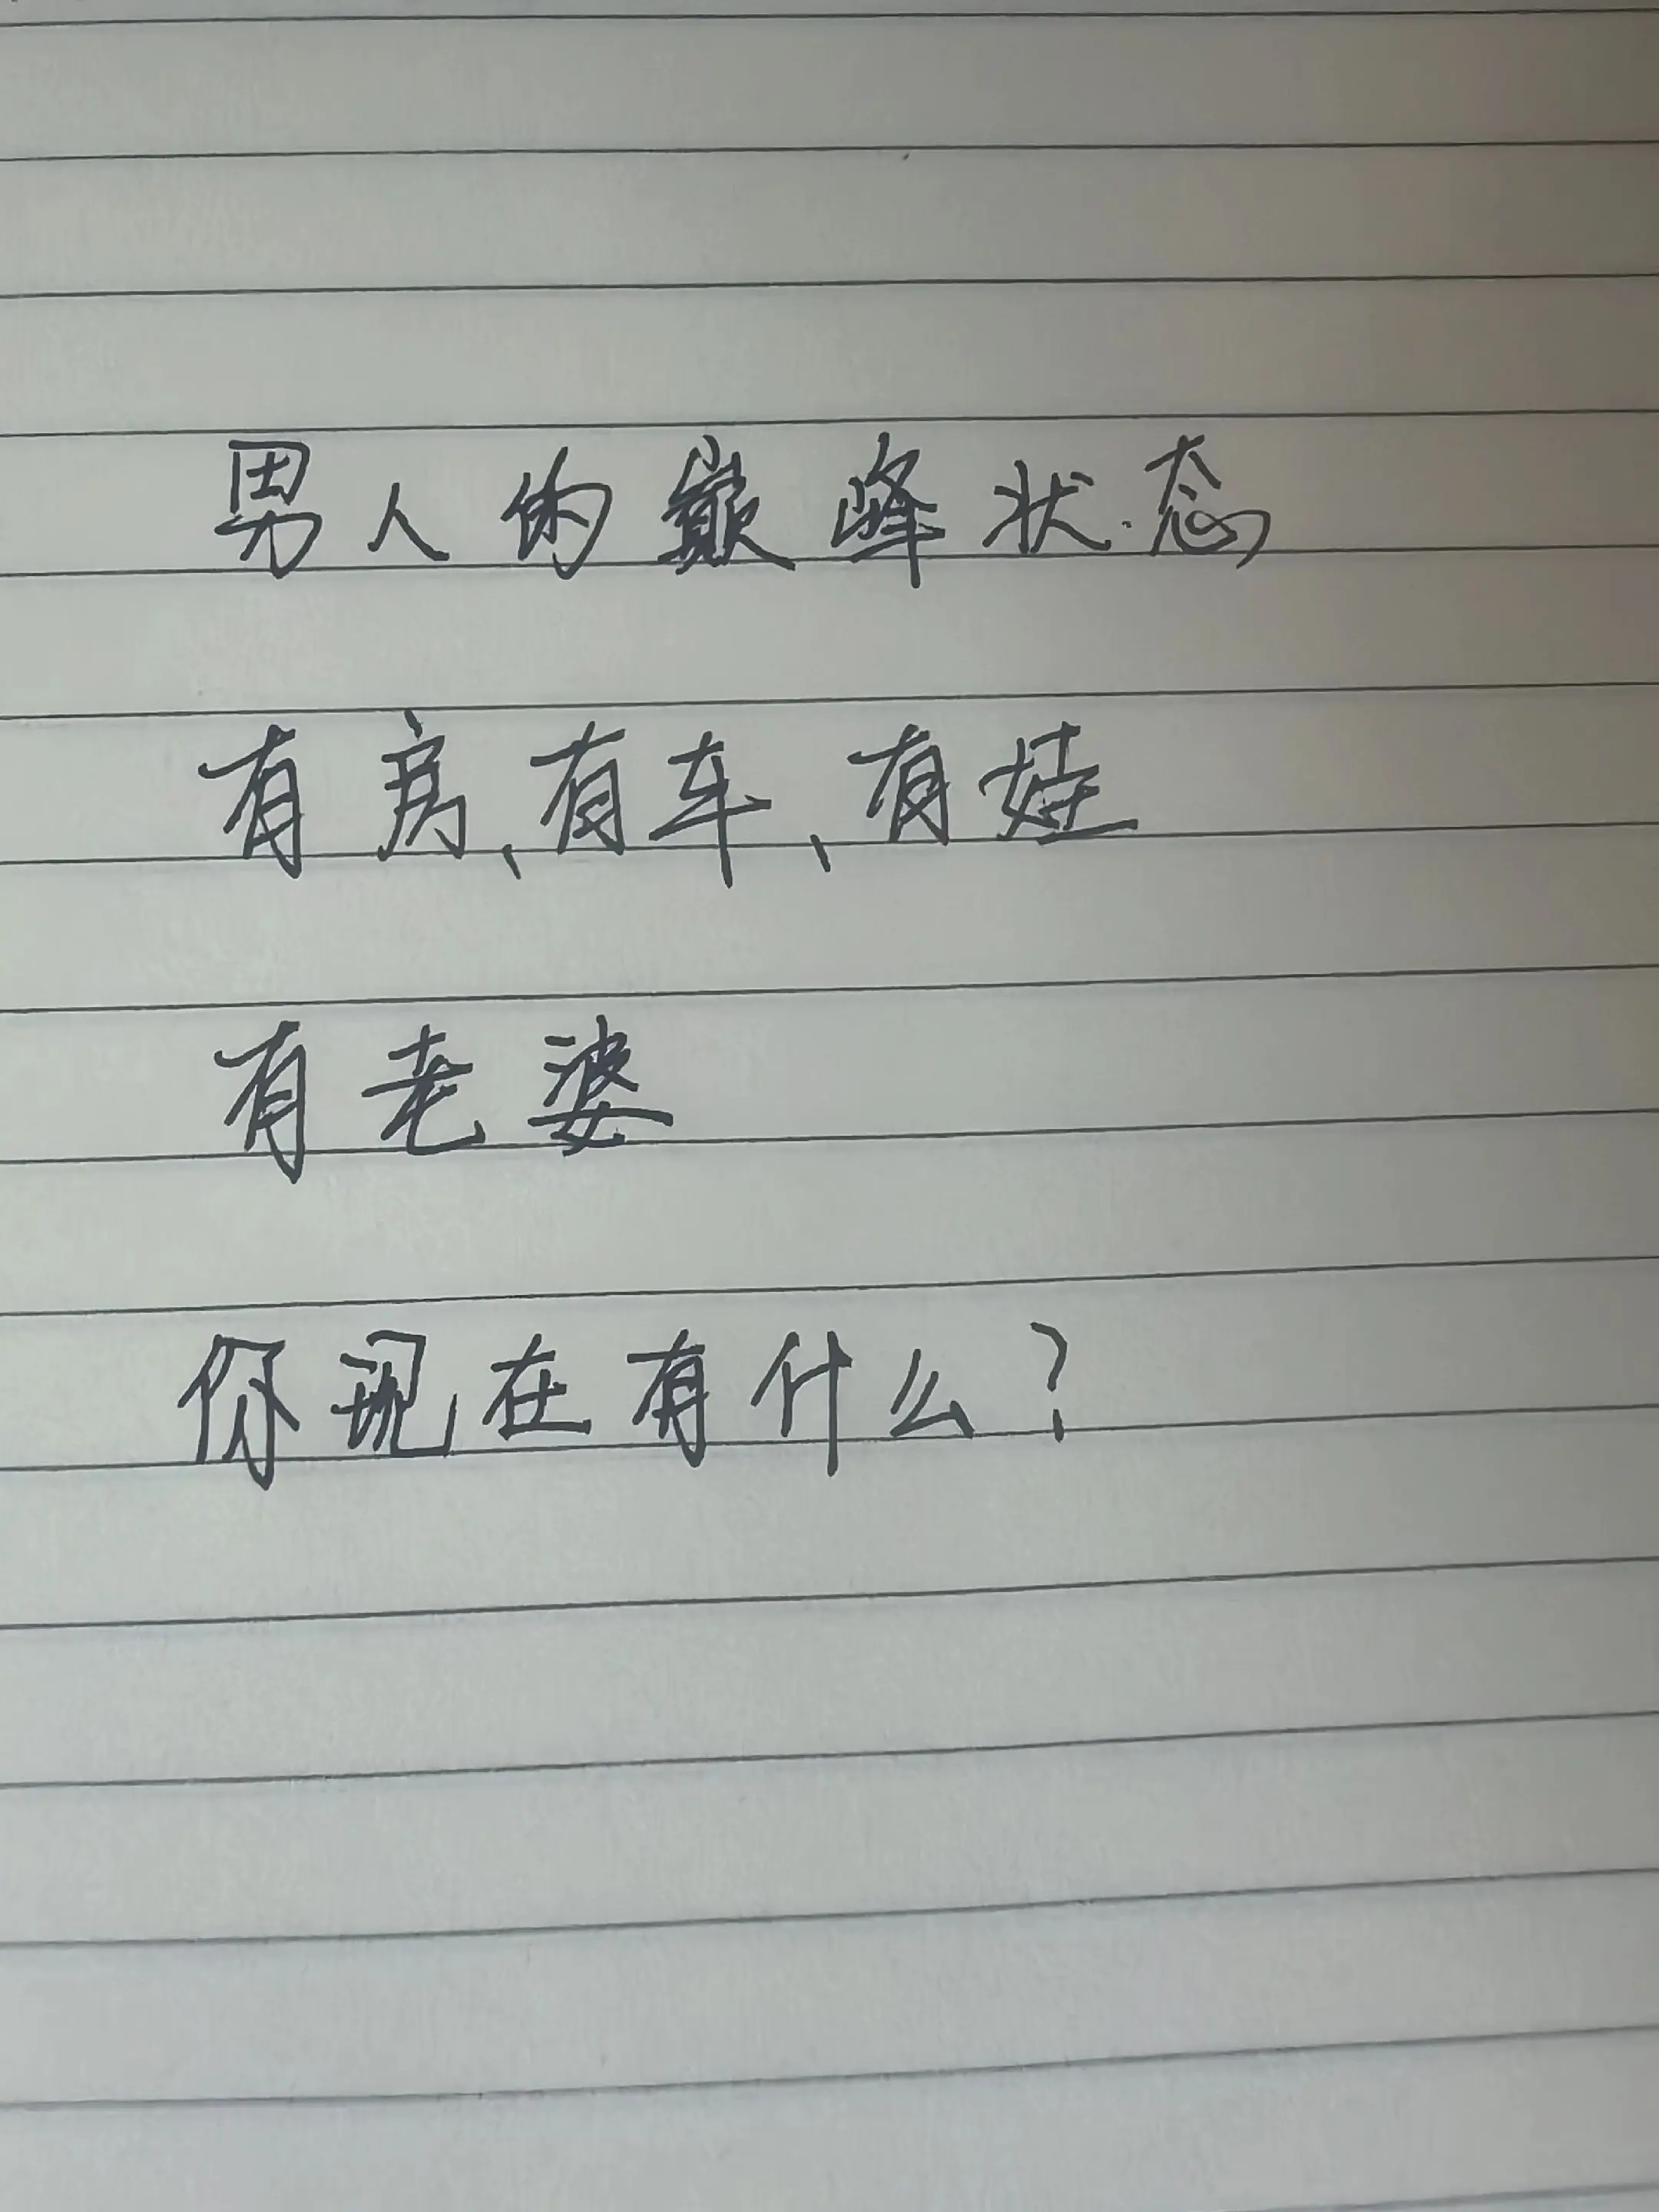 男人的巅峰状态
有房、有车、有娃
有老婆
你现在有什么?